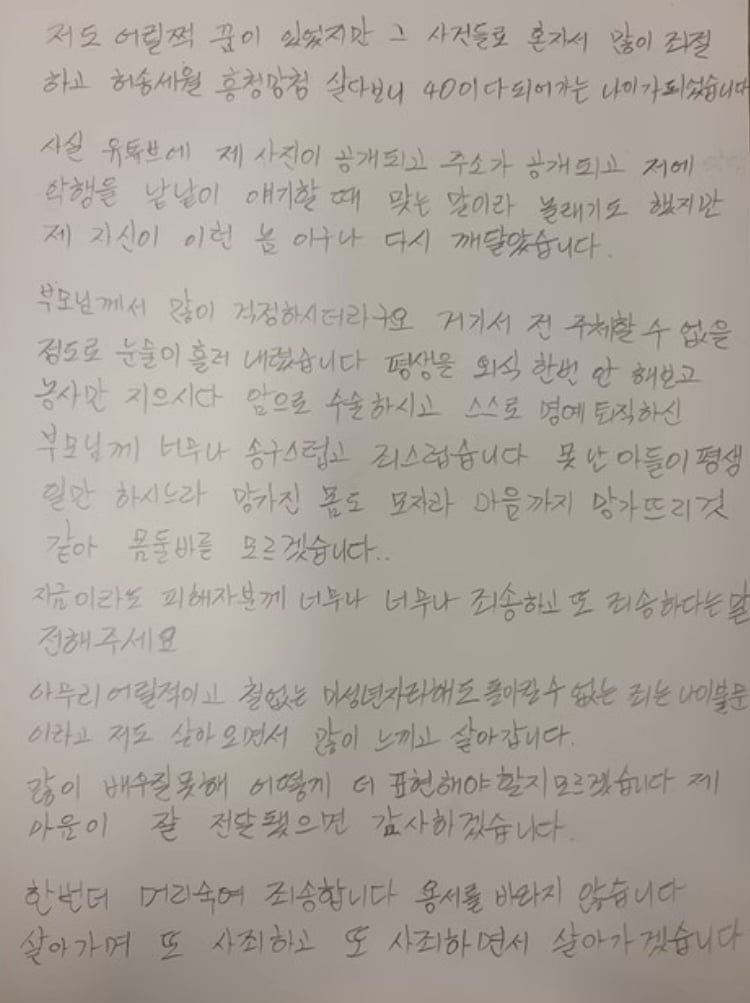 저도 어릴쩍 꿈이 있었지만 그 사건들로 혼자서 많이 좌절
하고 허송세월 흥청망청 살다보니 40이다되어가는 나이가되었습니다
사실 유튜브에 제 사진이 공개되고 주소가 공개되고 저에
악행을 낱낱이 얘기할 때 맞는 말이라 놀래기도 했지만
제 자신이 이런 놈 이구나 다시 깨달았습니다.
부모님께서 많이 걱정하시더라구요 거기서 전 주체할 수 없을
정도로 눈물이 흘러 내렸습니다 평생을 외식 한번 안 해보고
농사만 지으시다 암으로 수술하시고 스스로 명예퇴직하신
부모님께 너무나 송구스럽고 죄스럽습니다 못난아들이평생
일만 하시느라 망가진 몸도 모자라 마음까지 망가뜨리것
같아 몸둘바를 모르겠습니다..
지금이라도 피해자분께 너무나 너무나 죄송하고 또 죄송하다는말
전해주세요
아무리어릴적이고 철없는 미성년자라해도 돌아킬수 없는 죄는 나이불문
이라고 저도 살아오면서 많이 느끼고 살아갑니다.
많이 배우질못해 어떻게 더 표현해야할지모르겠습니다 제
마음이 잘 전달됐으면 감사하겠습니다.
한번더 머리숙여 죄송합니다 용서를 바라지 않습니다
살아가며 또 사죄하고 또 사죄하면서 살아가겠습니다